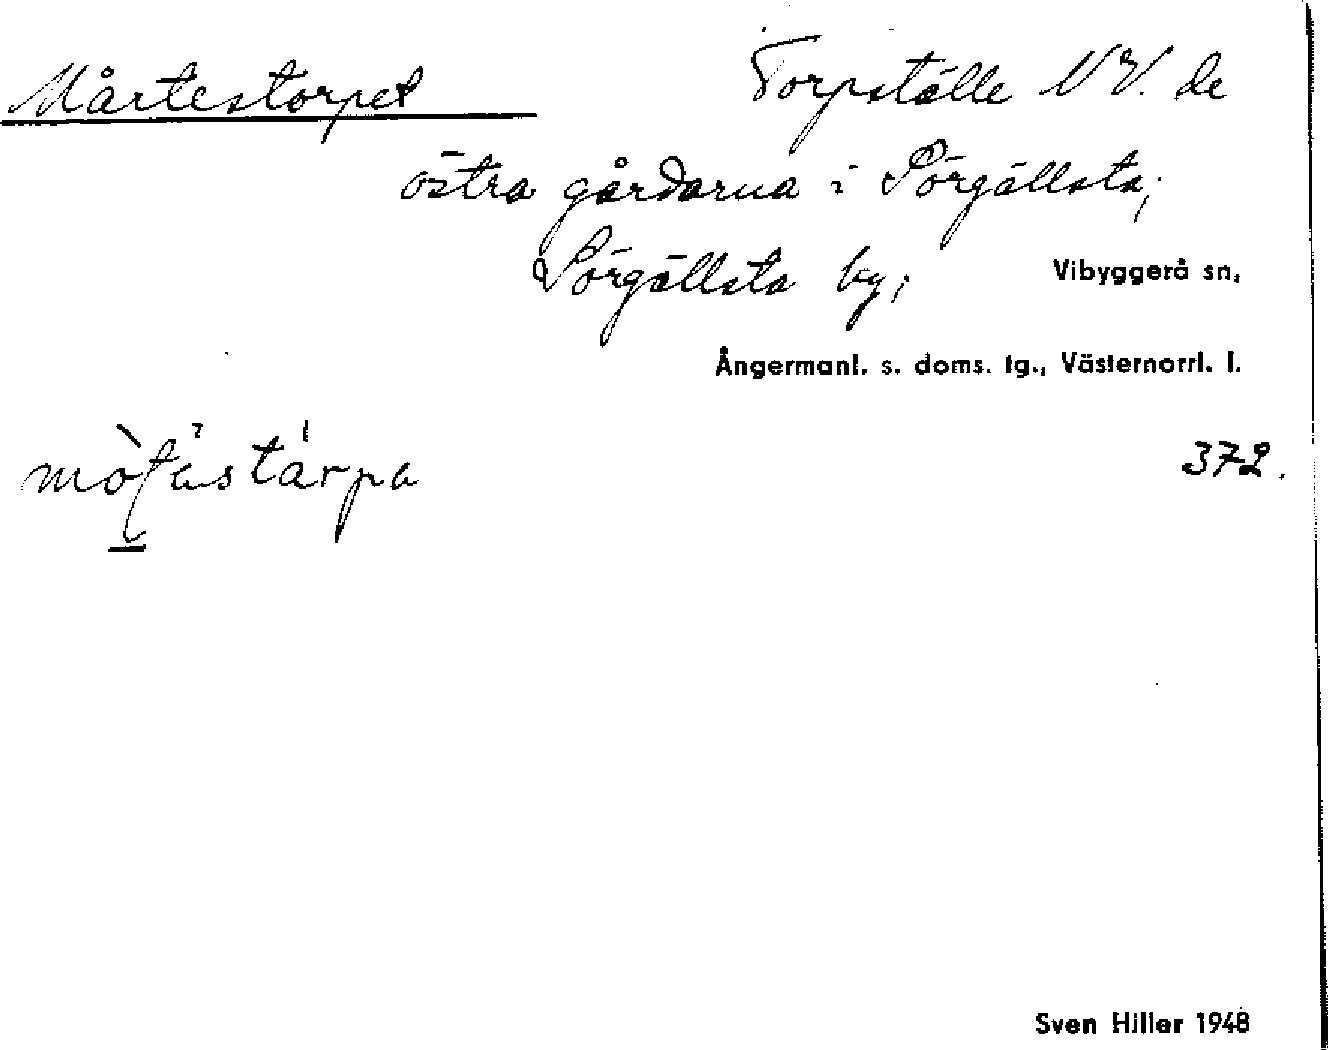 Mårtestorpet
Torpställe NV. de
östra gårdarna i Sörgällsta;
Sörgällsta by;
Vibyggerå sn,
Ångermanl. s. doms. tg., Västernorrl. l.
372.
Sven Hiller 1948